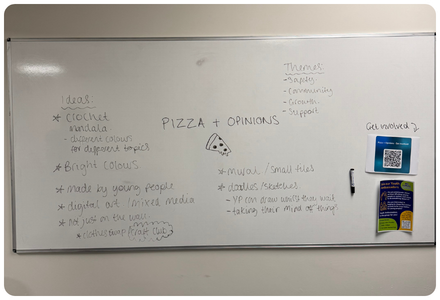 Ideas:
* Crochet
mandala
- different colours
for different topics
* Bright colours
* made by young people
* digital art / mixed media
* not just on the wall
* clothes swap / craft club
PIZZA + OPINIONS
Themes:
- Safety
- Community
- Growth
- Support
* mural / small tiles
* doodles / sketches
- YP can draw whilst they wait
- taking their mind off things
Get involved